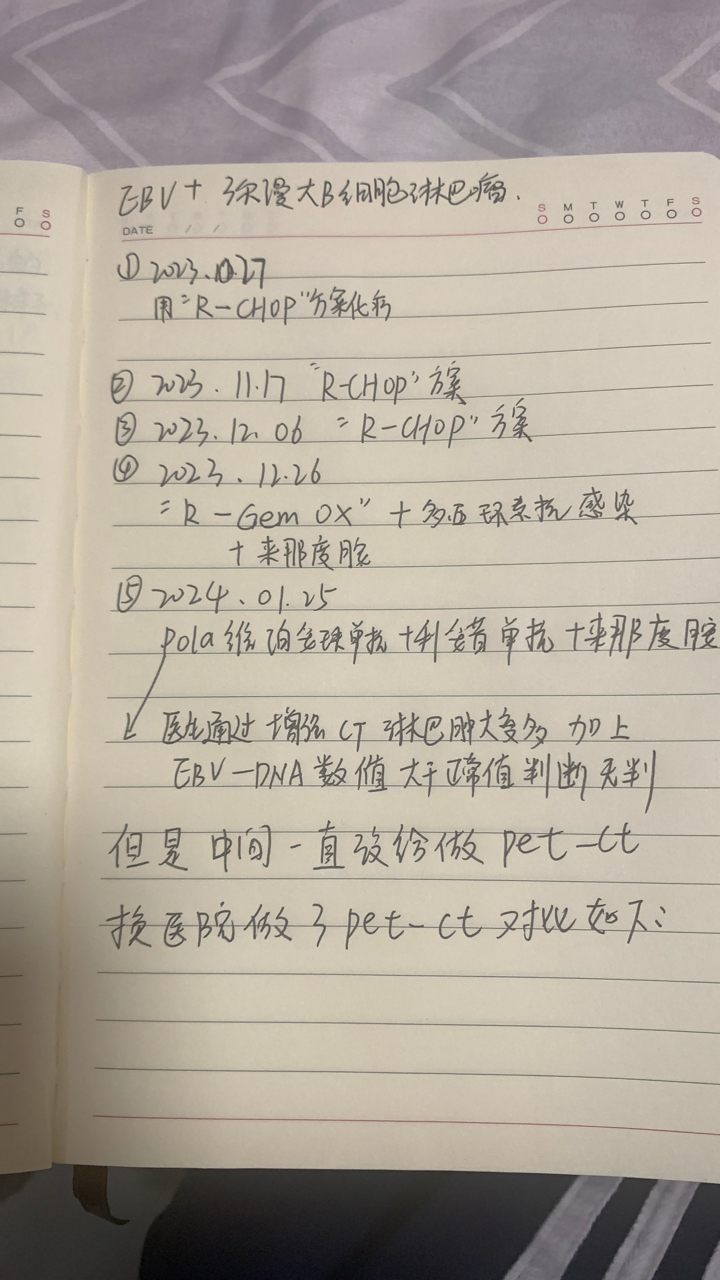 EBV+ 弥漫大B细胞淋巴瘤.
F S
S M T W T F S
DATE / /
① 2023.10.27
用“R-CHOP”方案化疗
② 2023.11.17 “R-CHOP”方案
③ 2023.12.06 “R-CHOP”方案
④ 2023.12.26
“R-Gem OX”+多西环素抗感染
+来那度胺
⑤ 2024.01.25
pola维泊妥珠单抗+利妥昔单抗+来那度胺
医生通过增强CT 淋巴肿大变多 加上
EBV-DNA数值大于正常值判断
但是中间一直没给做pet-ct
换医院做了pet-ct对比如下: